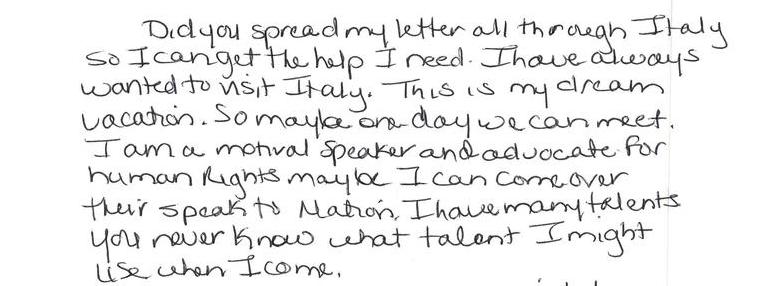 Did you spread my letter all through Italy
so I can get the help I need. I have always
wanted to visit Italy. This is my dream
vacation. So maybe one day we can meet.
I am a motival speaker and advocate for
human Rights maybe I can come over
their speak to Nation, I have many talents
you never know what talent I might
use when I come.